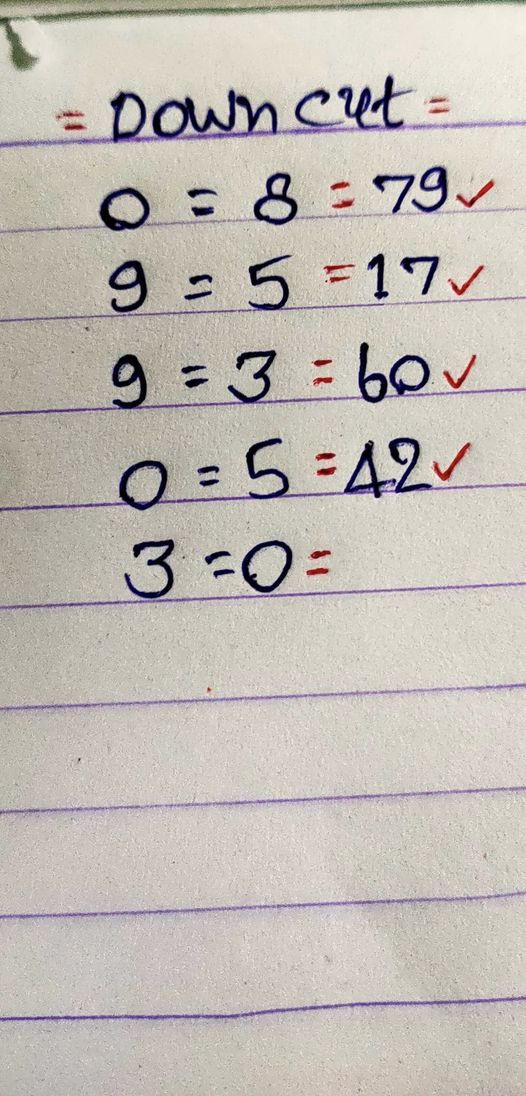 = Down cut =
0 = 8 = 79 ✓
9 = 5 = 17 ✓
9 = 3 = 60 ✓
0 = 5 = 42 ✓
3 = 0 =